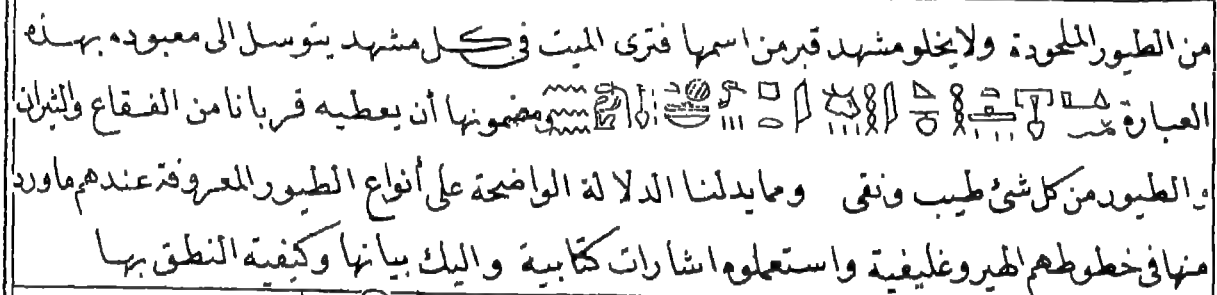 من الطيور الملحودة ولا يخلو مشهد قبر من اسمها فترى الميت فى كل مشهد يتوسل الى معبوده بهذه
العبارة ومضمونها أن يعطيه قربانا من الفقاع والثيران
والطيور من كل شئ طيب ونقى ومما يدلنا الدلالة الواضحة على أنواع الطيور المعروفة عندهم ماورد
منها فى خطوطهم الهيروغليفية واستعملوه اشارات كتابية واليك بيانها وكيفية النطق بها